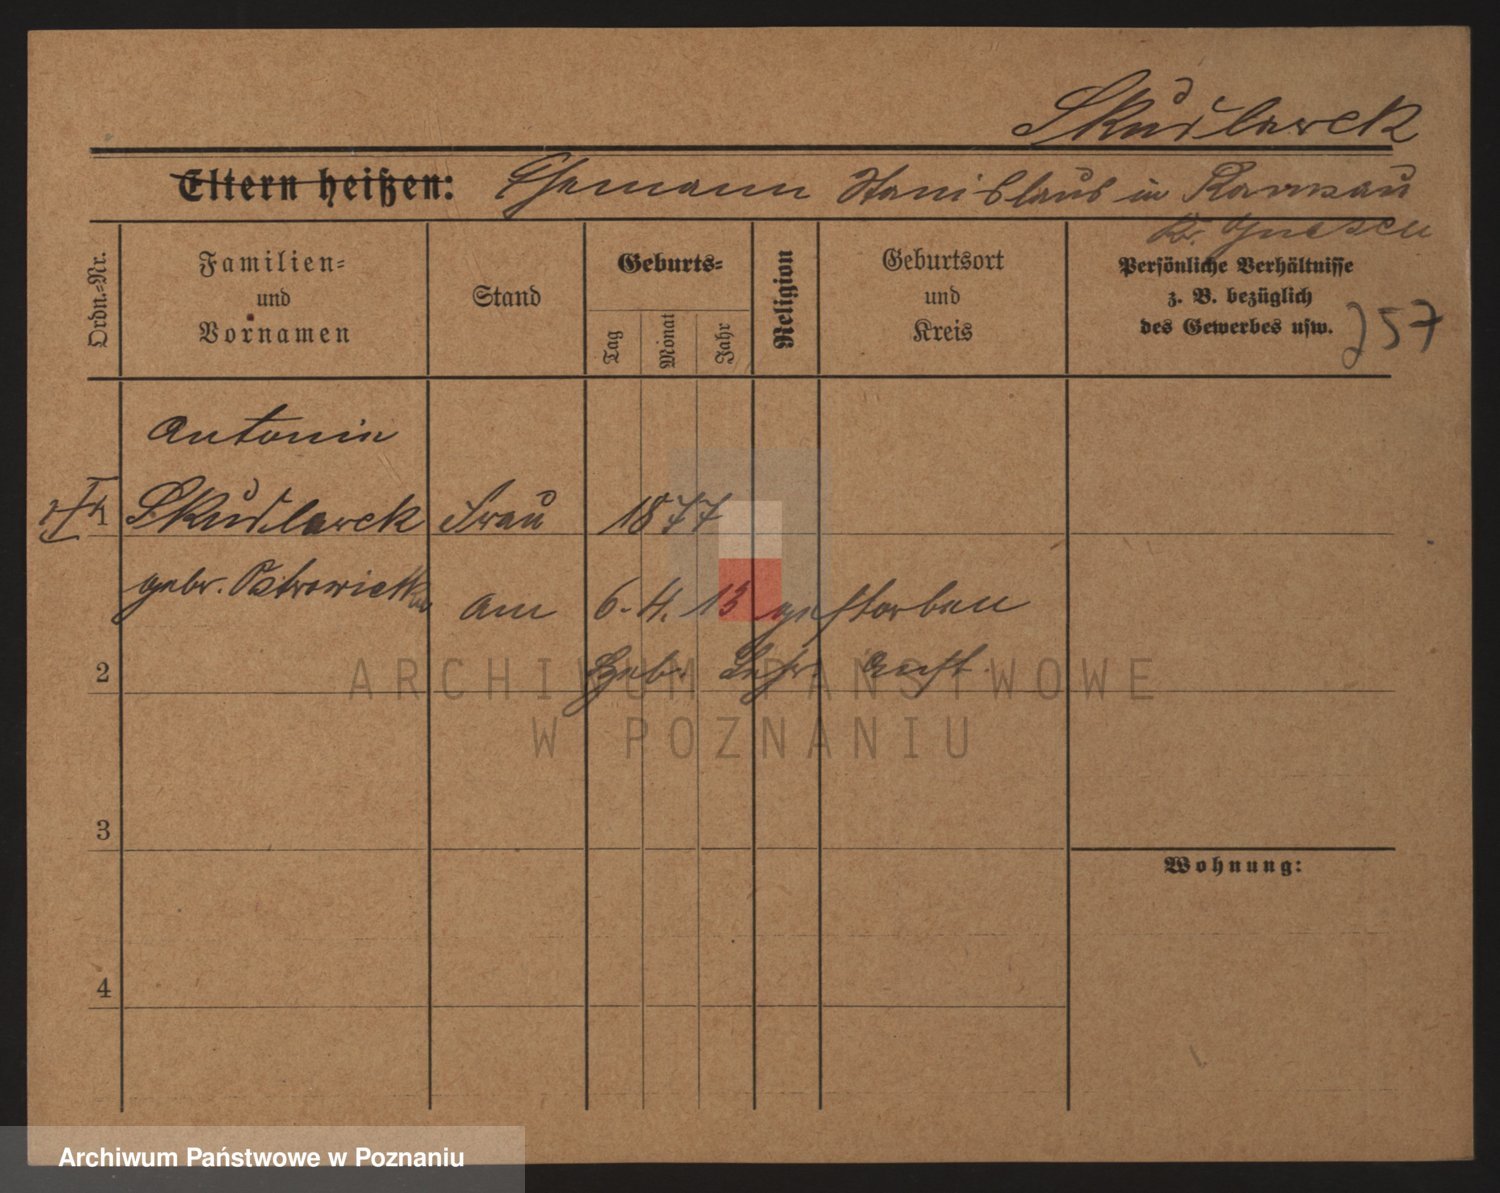 Skudlarek
Eltern heißen: Ehemann Stanislaus in
Kr. Gnesen
Ordn.-Nr.
Familien-
und
Vornamen
Stand
Geburts-
Tag
Monat
Jahr
Religion
Geburtsort
und
Kreis
Persönliche Verhältnisse
z. B. bezüglich
des Gewerbes usw.
257
Antonin
Skudlarek Frau 1877
gebr.
am 6. 4. 13 gestorben
2
Hebr. Lehr. Anst.
3
4
Wohnung:
ARCHIWUM PAŃSTWOWE
W POZNANIU
Archiwum Państwowe w Poznaniu